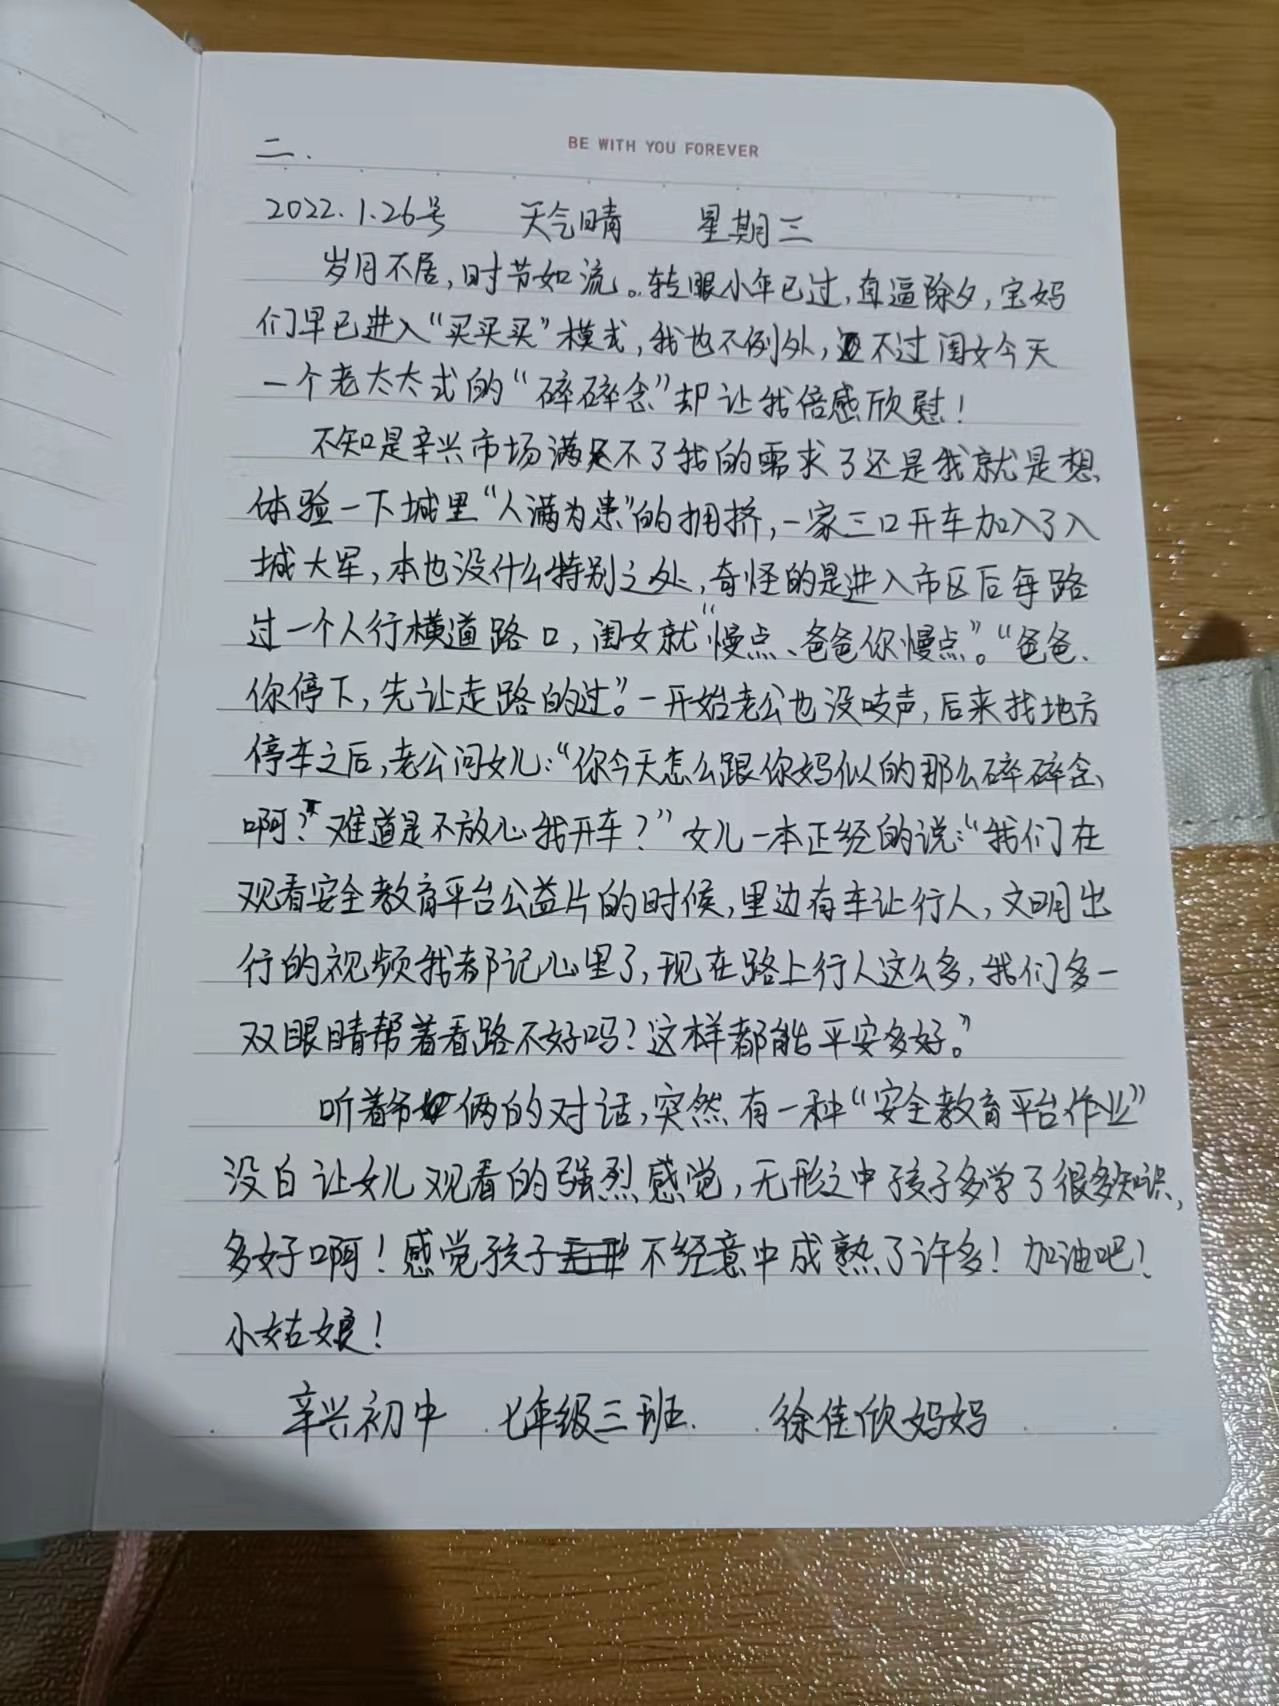 BE WITH YOU FOREVER
二.
2022.1.26号 天气晴 星期三
岁月不居,时节如流。转眼小年已过,直逼除夕,宝妈
们早已进入“买买买”模式,我也不例外,不过闺女今天
一个老太太式的“碎碎念”却让我倍感欣慰!
不知是辛兴市场满足不了我的需求了还是我就是想
体验一下城里“人满为患”的拥挤,一家三口开车加入了入
城大军,本也没什么特别之处,奇怪的是进入市区后每路
过一个人行横道路口,闺女就“慢点、爸爸你慢点”。“爸爸、
你停下,先让走路的过”。一开始老公也没吱声,后来找地方
停车之后,老公问女儿:“你今天怎么跟你妈似的那么碎碎念
啊?难道是不放心我开车?”女儿一本正经的说:“我们在
观看安全教育平台公益片的时候,里边有车让行人,文明出
行的视频我都记心里了,现在路上行人这么多,我们多一
双眼睛帮着看路不好吗?这样都能平安多好。”
听着爷俩的对话,突然有一种“安全教育平台作业”
没白让女儿观看的强烈感觉,无形之中孩子多学了很多知识,
多好啊!感觉孩子不经意中成熟了许多!加油吧!
小姑娘!
辛兴初中 七年级三班. 徐佳欣妈妈